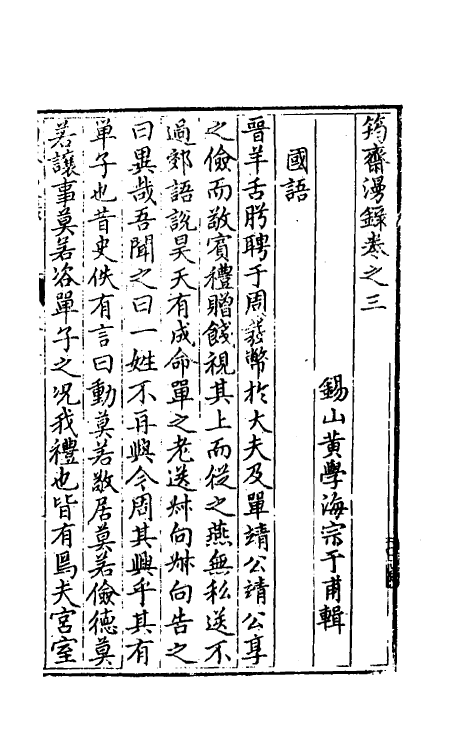 筠齋漫錄卷之三
錫山黃學海宗于甫輯
國語
晉羊舌肹聘于周發幣於大夫及單靖公靖公享
之儉而敬賓禮贈餞視其上而從之燕無私送不
過郊語說昊天有成命單之老送叔向叔向告之
曰異哉吾聞之曰一姓不再興今周其興乎其有
單子也昔史佚有言曰動莫若敬居莫若儉德莫
若讓事莫若咨單子之况我禮也皆有焉夫宮室